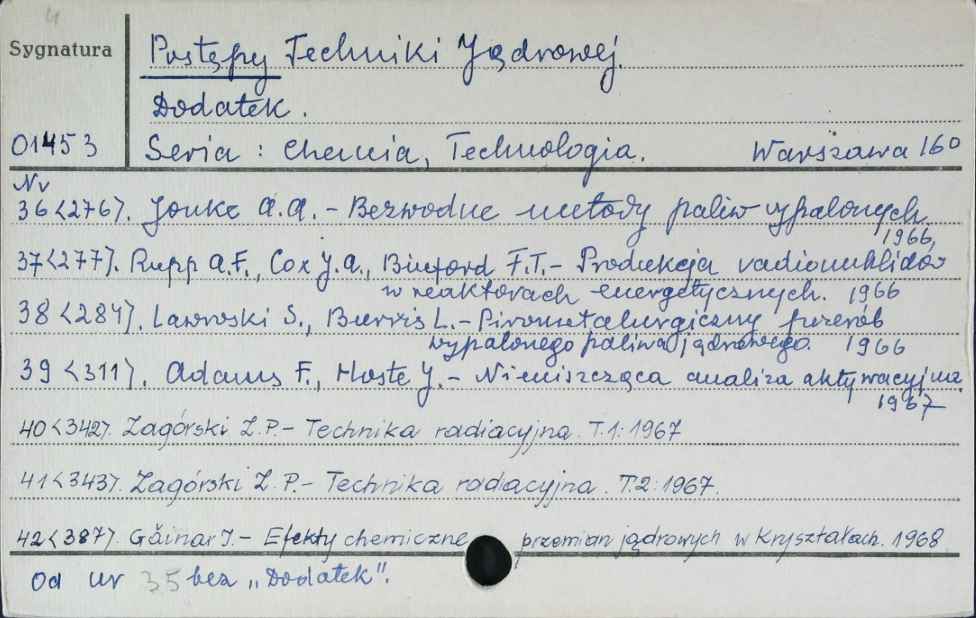 4
Sygnatura
Postępy Techniki Jądrowej.
Dodatek.
01453
Seria: Chemia, Technologia. Warszawa 160
Nr
36<276>. Jonke A.A. - Bezwodne metody paliw wypalonych
1966,
37<277>. Rupp A.F., Cox J.A., Binford F.T. - Produkcja radionuklidów
w reaktorach energetycznych. 1966
38<284>. Lawroski S., Burris L. - Pirometalurgiczny przerób
wypalonego paliwa jądrowego. 1966
39<311>. Adams F., Hoste J. - Nieniszcząca analiza aktywacyjna
1967
40<342>. Zagórski Z.P. - Technika radiacyjna. T.1: 1967
41<343>. Zagórski Z.P. - Technika radacyjna. T.2: 1967.
42<387>. Găinar I. - Efekty chemiczne przemian jądrowych w Kryształach. 1968
Od nr 35 bez "Dodatek".